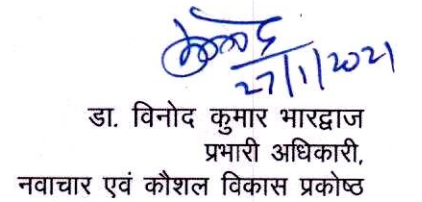 विनोद
27/1/2021
डा. विनोद कुमार भारद्वाज
प्रभारी अधिकारी,
नवाचार एवं कौशल विकास प्रकोष्ठ